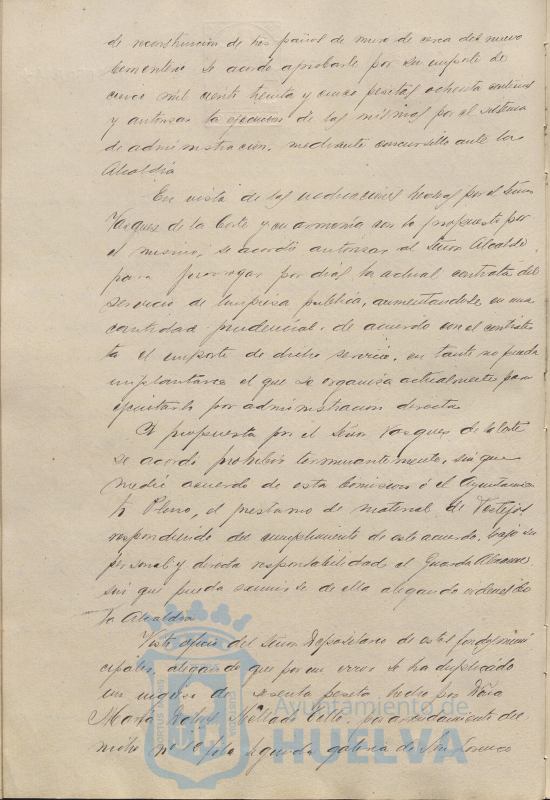 de reconstrucción de tres paños de muro de cerca del nuevo
Cementerio se acordó aprobarlo por su importe de
cinco mil ciento treinta y cinco pesetas ochenta centimos
y autorizar la ejecución de las mismas por el sistema
de administración, mediante concursillo ante la
Alcaldia
En vista de las indicaciones hechas por el Señor
Vazquez de la Corte y en armonia con lo propuesto por
el mismo, se acordó autorizar al Señor Alcalde
para prorrogar por dias la actual contrata del
servicio de limpieza publica, aumentandose en una
cantidad prudencial, de acuerdo con el contratis
ta el importe de dicho servicio, en tanto no pueda
implantarse el que se organiza actualmente para
ejecutarlo por administracion directa
A propuesta por el Señor Vazquez de la Corte
se acordó prohibir terminantemente, sin que
medie acuerdo de esta Comision ó el Ayuntamien
to Pleno, el prestamo de material de Festejos
respondiendo del cumplimiento de este acuerdo, bajo su
personal y directa responsabilidad el Guarda Almacen
sin que pueda eximirse de ella alegando ordenes de
la Alcaldia
Visto oficio del Señor Depositario de estos fondos muni
cipales, alegando que por un error se ha duplicado
un ingreso de sesenta pesetas hecho por Doña
Maria por arrendamiento del
nicho nº fila segunda galeria de San
Ayuntamiento de
HUELVA